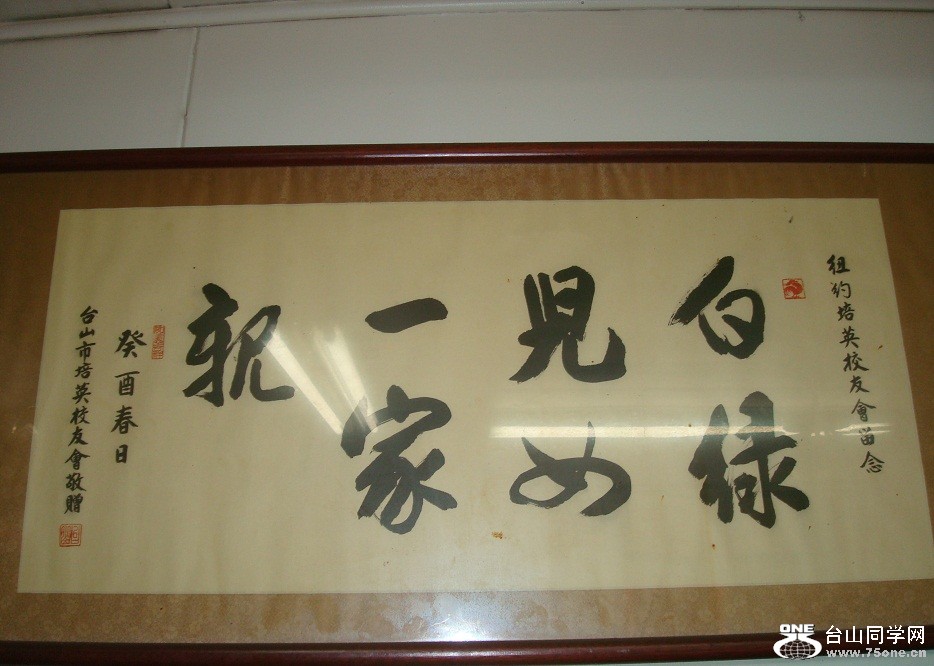 紐約培英校友會留念
白绿
見如
一家
親
癸酉春日
台山市培英校友會敬贈
ONE
台山同学网
www.75one.cn